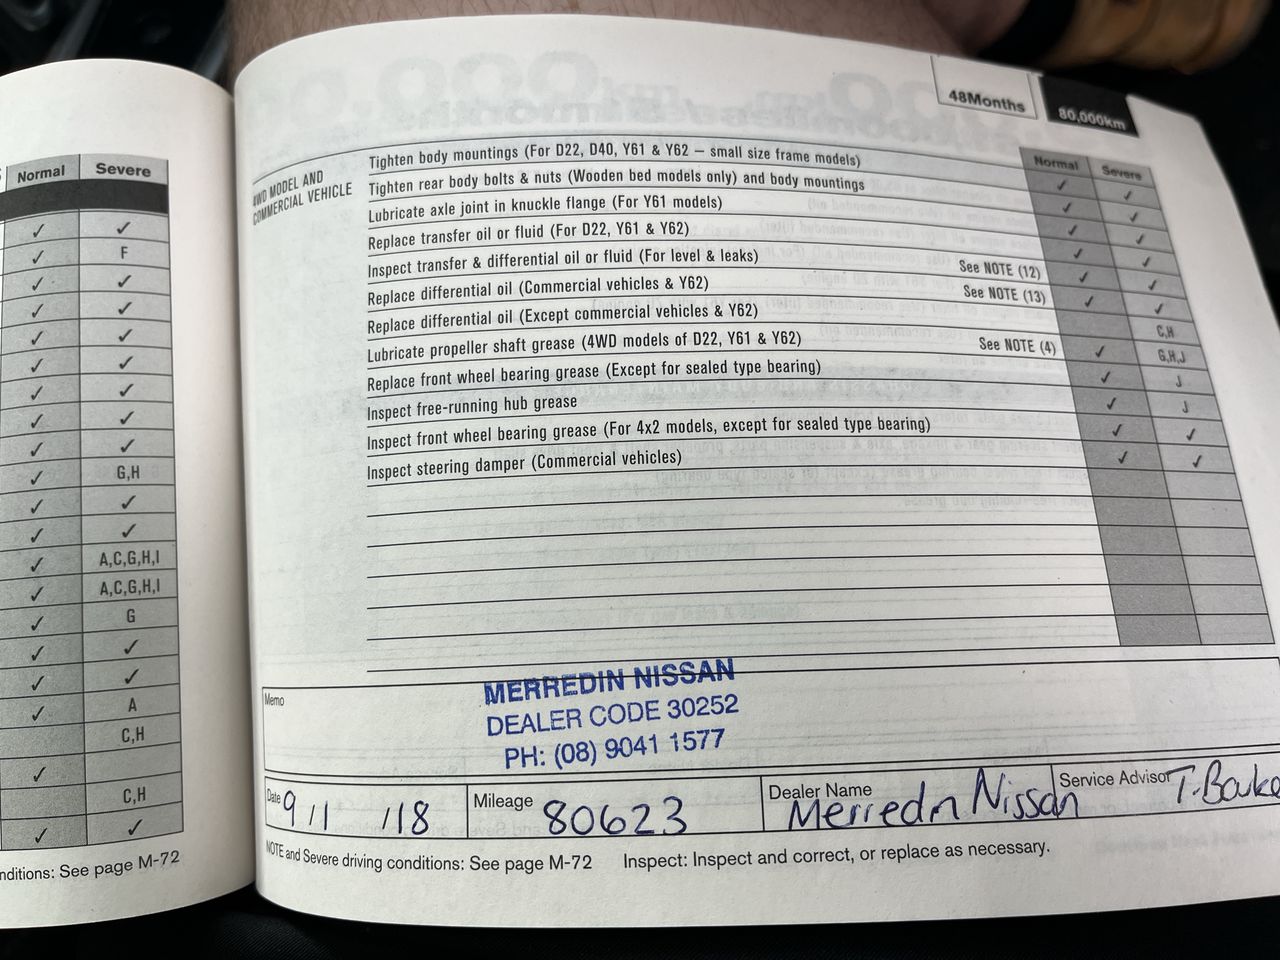 Normal Severe
✓ ✓
✓ F
✓ ✓
✓ ✓
✓ ✓
✓ ✓
✓ ✓
✓ ✓
✓ ✓
✓ G,H
✓ ✓
✓ ✓
✓ A,C,G,H,I
✓ A,C,G,H,I
✓ G
✓ ✓
✓ ✓
✓ A
C,H
✓
C,H
✓ ✓
nditions: See page M-72
48Months 80,000km
Normal Severe
4WD MODEL AND
COMMERCIAL VEHICLE
Tighten body mountings (For D22, D40, Y61 & Y62 – small size frame models) ✓ ✓
Tighten rear body bolts & nuts (Wooden bed models only) and body mountings ✓ ✓
Lubricate axle joint in knuckle flange (For Y61 models) ✓ ✓
Replace transfer oil or fluid (For D22, Y61 & Y62) ✓ ✓
Inspect transfer & differential oil or fluid (For level & leaks) ✓ ✓
Replace differential oil (Commercial vehicles & Y62) See NOTE (12) ✓ ✓
Replace differential oil (Except commercial vehicles & Y62) See NOTE (13) C,H
Lubricate propeller shaft grease (4WD models of D22, Y61 & Y62) ✓ G,H,J
Replace front wheel bearing grease (Except for sealed type bearing) See NOTE (4) ✓ J
Inspect free-running hub grease ✓ J
Inspect front wheel bearing grease (For 4x2 models, except for sealed type bearing) ✓ ✓
Inspect steering damper (Commercial vehicles) ✓ ✓
Memo
MERREDIN NISSAN
DEALER CODE 30252
PH: (08) 9041 1577
Date 9/1/18 Mileage 80623 Dealer Name Merredin Nissan Service Advisor T.
NOTE and Severe driving conditions: See page M-72 Inspect: Inspect and correct, or replace as necessary.